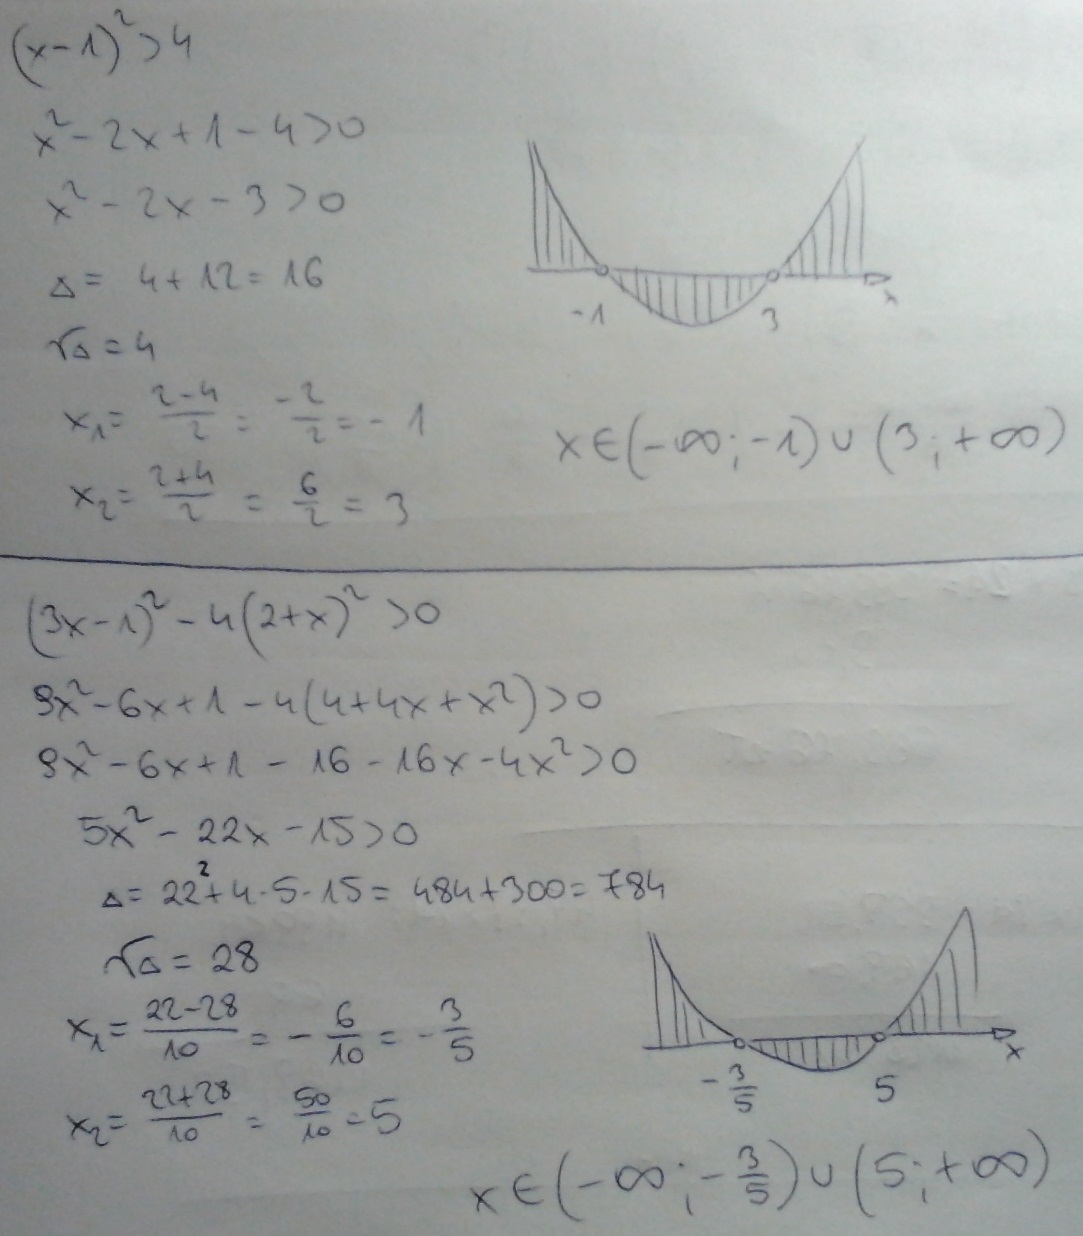 (x-1)²>4
x²-2x+1-4>0
x²-2x-3>0
△= 4+12=16
√△=4
x₁= (2-4)/2 = -2/2 = -1
x₂= (2+4)/2 = 6/2 = 3
-1 3 x
x∈(-∞;-1)∪(3;+∞)
(3x-1)²-4(2+x)²>0
9x²-6x+1-4(4+4x+x²)>0
9x²-6x+1-16-16x-4x²>0
5x²-22x-15>0
△=22²+4·5·15=484+300=784
√△=28
x₁= (22-28)/10 = -6/10 = -3/5
x₂= (22+28)/10 = 50/10 = 5
-3/5 5 x
x∈(-∞;-3/5)∪(5;+∞)